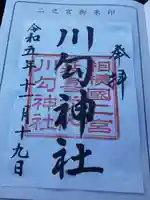 二之宮御朱印
奉拝
相模國二宮
川勾神社
川勾神社
令和五年十一月十九日